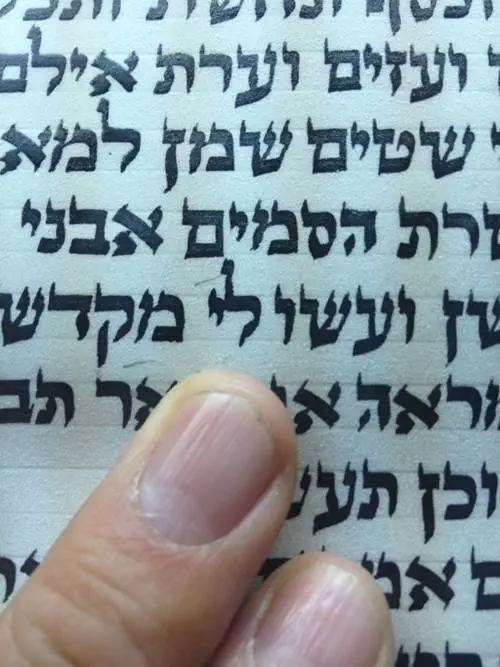 וכסף ונחשת ותכל
ועזים וערת אילם
שטים שמן למא
טרת הסמים אבני
שן ועשו לי מקדש
מראה תב
וכן תעש